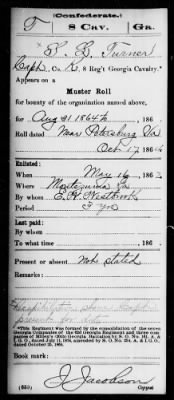 (Confederate.)
T 8 Cav. Ga.
Turner
Capt, Co. K, 8 Reg't Georgia Cavalry.*
Appears on a
Muster Roll
for bounty of the organization named above,
for Aug 31 1864, 186 .
Roll dated Near Petersburg Va
Oct 17, 1864
Enlisted:
When May 16, 186
Where Montezuma Ga
By whom E. H. Westbrook
Period 3 yrs
Last paid:
By whom
To what time , 186 .
Present or absent Not stated
Remarks:
*This Regiment was formed by the consolidation of the seven
Georgia companies of the 62d Georgia Regiment and three companies of
Georgia Battalion by S. O. No. 161, A. & I. G. O., dated July 11, 1864, amended by S. O. No. 254, A. & I. G. O.,
dated October 26, 1864.
Book mark:
J. Jacobson
Copyist.